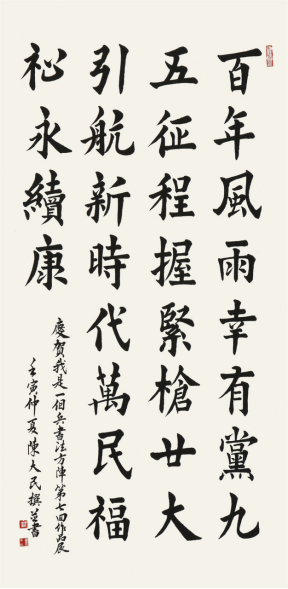 百年風雨幸有黨九
五征程握緊槍廿大
引航新時代萬民福
祉永續康
慶賀我是一個兵書法方陣第七回作品展
壬寅仲夏陳大民撰並書